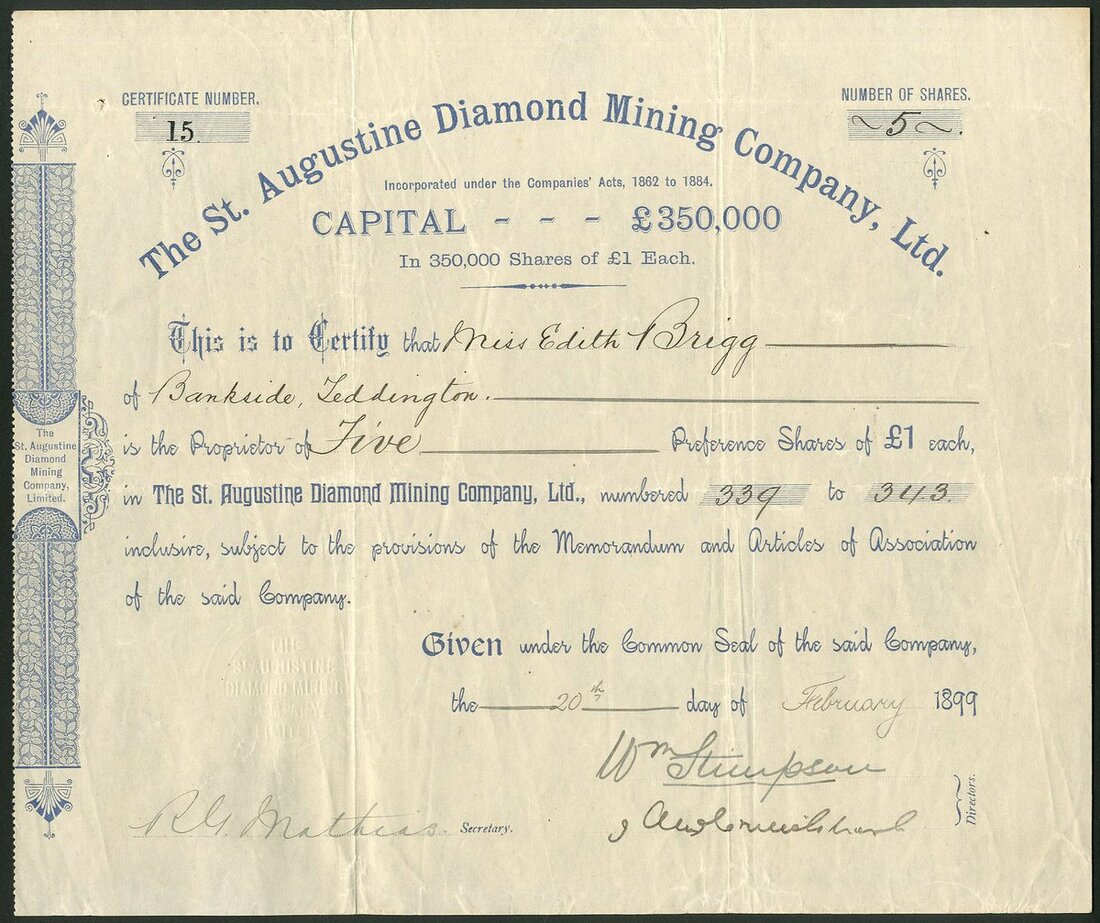 CERTIFICATE NUMBER.
15.
NUMBER OF SHARES.
~5~.
The St. Augustine Diamond Mining Company, Ltd.
Incorporated under the Companies' Acts, 1862 to 1884.
CAPITAL - - - £350,000
In 350,000 Shares of £1 Each.
This is to Certify that Miss Edith Brigg
of Bankside, Teddington.
is the Proprietor of Five Preference Shares of £1 each,
in The St. Augustine Diamond Mining Company, Ltd., numbered 339 to 343.
inclusive, subject to the provisions of the Memorandum and Articles of Association
of the said Company.
The
St. Augustine
Diamond
Mining
Company,
Limited.
THE
ST. AUGUSTINE
DIAMOND MINING
COMPANY
LIMITED
Given under the Common Seal of the said Company,
the 20th day of February 1899
Wm Stimpson
Directors.
R. G. Mathias Secretary.